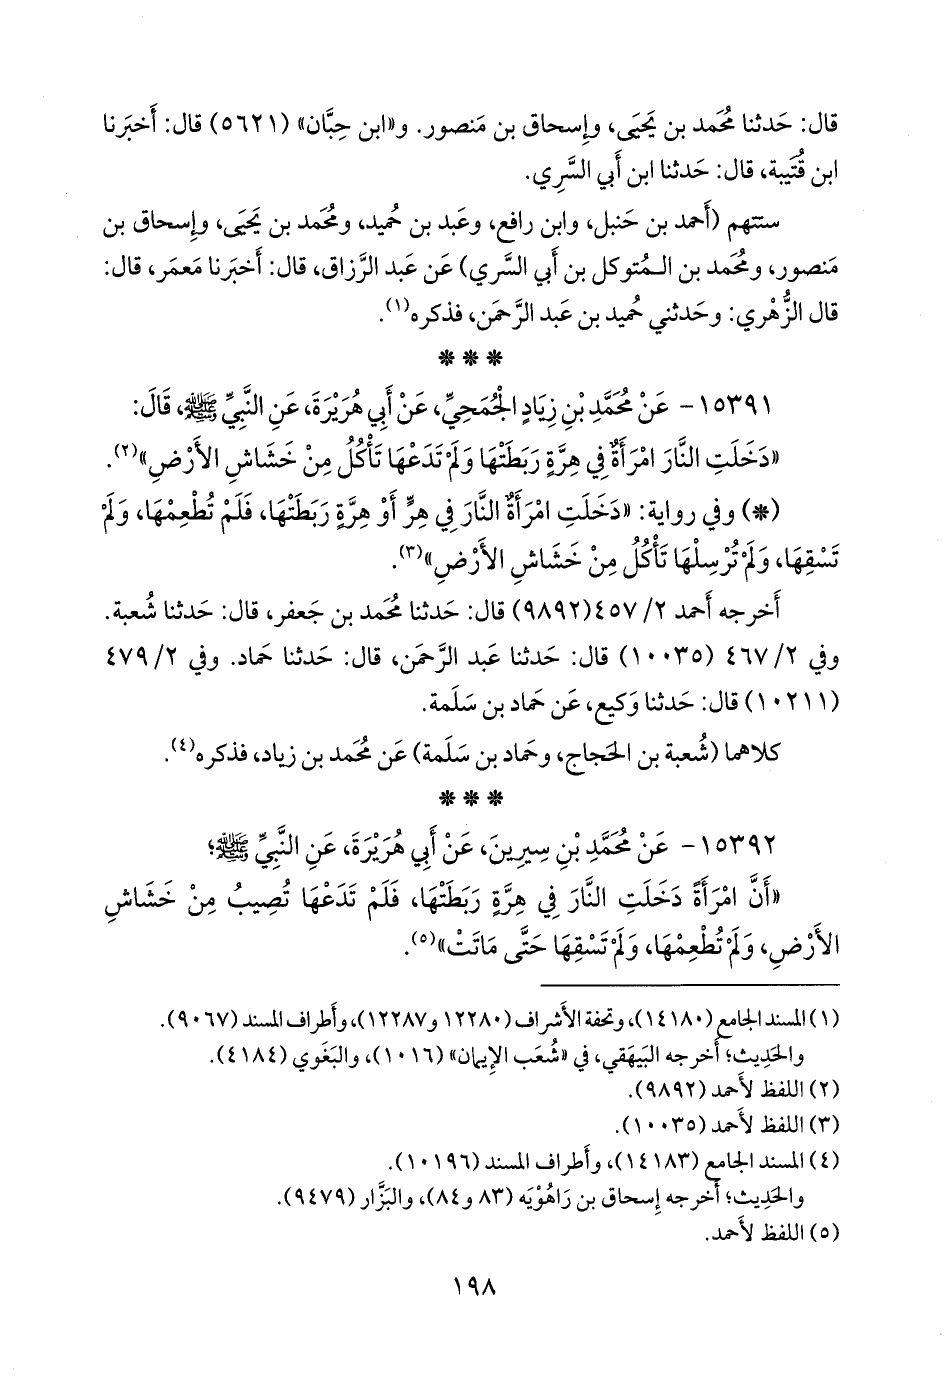 قال: حَدثنا مُحَمد بن يَحيَى، وإِسحاق بن مَنصور. و«ابن حِبَّان» (٥٦٢١) قال: أَخبَرنا
ابن قُتَيبة، قال: حَدثنا ابن أَبي السَّرِي.
ستتهم (أَحمد بن حَنبل، وابن رافع، وعَبد بن حُميد، ومُحَمد بن يَحيَى، وإِسحاق بن
مَنصور، ومُحَمد بن المُتوكل بن أَبي السَّري) عَن عَبد الرَّزاق، قال: أَخبَرنا مَعمَر، قال:
قال الزُّهْري: وحَدثني حُميد بن عَبد الرَّحمَن، فذكره(١).
* * *
١٥٣٩١- عَنْ مُحَمَّدِ بْنِ زِيَادٍ الْجُمَحِيِّ، عَنْ أَبِي هُرَيْرَةَ، عَنِ النَّبِيِّ ﷺ، قَالَ:
«دَخَلَتِ النَّارَ امْرَأَةٌ فِي هِرَّةٍ رَبَطَتْهَا وَلَمْ تَدَعْهَا تَأْكُلُ مِنْ خَشَاشِ الأَرْضِ»(٢).
(*) وفي رواية: «دَخَلَتِ امْرَأَةٌ النَّارَ فِي هِرٍّ أَوْ هِرَّةٍ رَبَطَتْهَا، فَلَمْ تُطْعِمْهَا، وَلَمْ
تَسْقِهَا، وَلَمْ تُرْسِلْهَا تَأْكُلُ مِنْ خَشَاشِ الأَرْضِ»(٣).
أَخرجه أَحمد ٢/ ٤٥٧(٩٨٩٢) قال: حَدثنا مُحَمد بن جَعفر، قال: حَدثنا شُعبة.
وفي ٢/ ٤٦٧ (١٠٠٣٥) قال: حَدثنا عَبد الرَّحمَن، قال: حَدثنا حَماد. وفي ٢/ ٤٧٩
(١٠٢١١) قال: حَدثنا وَكيع، عَن حَماد بن سَلَمة.
كلاهما (شُعبة بن الحَجاج، وحَماد بن سَلَمة) عَن مُحَمد بن زياد، فذكره(٤).
* * *
١٥٣٩٢- عَنْ مُحَمَّدِ بْنِ سِيرِينَ، عَنْ أَبِي هُرَيْرَةَ، عَنِ النَّبِيِّ ﷺ؛
«أَنَّ امْرَأَةً دَخَلَتِ النَّارَ فِي هِرَّةٍ رَبَطَتْهَا، فَلَمْ تَدَعْهَا تُصِيبُ مِنْ خَشَاشِ
الأَرْضِ، وَلَمْ تُطْعِمْهَا، وَلَمْ تَسْقِهَا حَتَّى مَاتَتْ»(٥).
(١) المسند الجامع (١٤١٨٠)، وتحفة الأشراف (١٢٢٨٠ و١٢٢٨٧)، وأَطراف المسند (٩٠٦٧).
والحَدِيث؛ أَخرجه البَيهَقي، في «شُعَب الإِيمان» (١٠١٦)، والبَغَوي (٤١٨٤).
(٢) اللفظ لأَحمد (٩٨٩٢).
(٣) اللفظ لأَحمد (١٠٠٣٥).
(٤) المسند الجامع (١٤١٨٣)، وأَطراف المسند (١٠١٩٦).
والحَدِيث؛ أَخرجه إِسحاق بن رَاهُوْيَه (٨٣ و٨٤)، والبَزَّار (٩٤٧٩).
(٥) اللفظ لأَحمد.
١٩٨